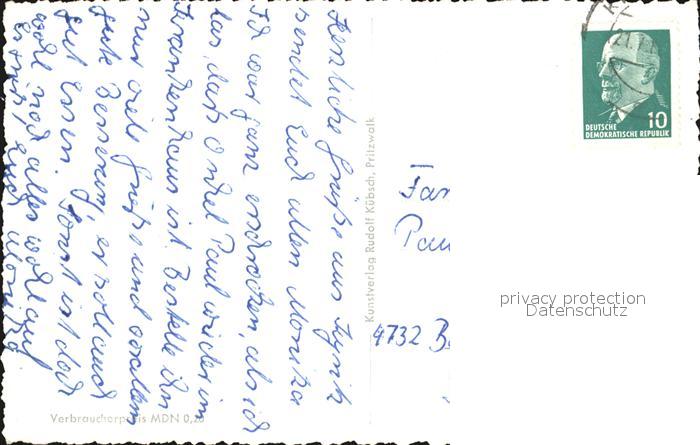 Herzliche Grüße aus Kyritz
sendet Euch allen Monika
Ich war ganz erschrocken, als ich
las, daß Onkel Paul wieder im
Krankenhaus ist. Bestelle ihm
nur viele Grüße und vor allem
gute Besserung, er soll auch
gut Essen. Sonst ist doch
wohl noch alles wohlauf
Es grüßt Euch Monika
Kunstverlag Rudolf Kübsch, Pritzwalk
Verbraucherpreis MDN 0,20
10
DEUTSCHE
DEMOKRATISCHE REPUBLIK
Fam
Pau
4732 B
privacy protection
Datenschutz